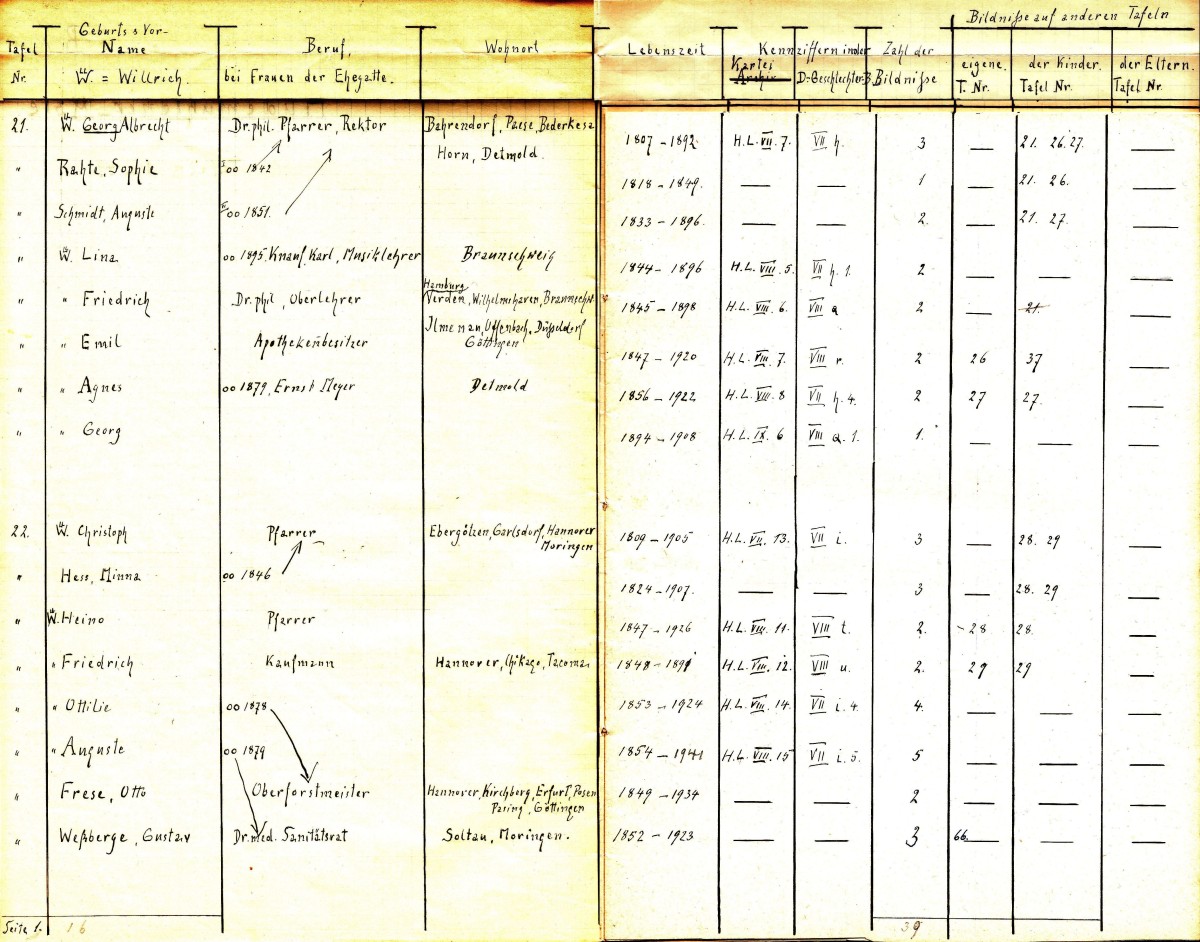 Bildniße auf anderen Tafeln
Tafel Nr. Geburts & Vor-Name W. = Willrich. Beruf, bei Frauen der Ehegatte. Wohnort Lebenszeit Kennziffern in der Kartei Archiv D=Geschlechter-B. Zahl der Bildniße eigene. T. Nr. der Kinder. Tafel Nr. der Eltern. Tafel Nr.
21. W. Georg Albrecht Dr. phil. Pfarrer, Rektor Bahrendorf, Paese, Bederkesa 1807 – 1892. H.L. VII. 7. VII h. 3 — 21. 26. 27. —
Horn, Detmold.
" Rahte, Sophie I oo 1842 1818 – 1849. — — 1 — 21. 26. —
" Schmidt, Auguste II oo 1851. 1833 – 1896. — — 2. — 21. 27. —
" W. Lina oo 1895, Knauf, Karl, Musiklehrer Braunschweig 1844 – 1896 H.L. VIII. 5. VII h. 1. 2 — — —
Hamburg
" " Friedrich Dr. phil, Oberlehrer Verden, Wilhelmshaven, Braunschw. 1845 – 1898 H.L. VIII. 6. VIII q 2 — 21. —
" " Emil Apothekenbesitzer Ilmenau, Offenbach, Düsseldorf Göttingen 1847 – 1920 H.L. VIII. 7. VIII r. 2 26 37 —
" " Agnes oo 1879, Ernst Meyer Detmold 1856 – 1922 H.L. VIII. 8 VII h. 4. 2 27 27. —
" " Georg 1894 – 1908 H.L. IX. 6 VIII q. 1. 1. — — —
22. W. Christoph Pfarrer Ebergötzen, Garlsdorf, Hannover Moringen 1809 – 1905 H.L. VII. 13. VII i. 3 — 28. 29 —
" Hess, Minna oo 1846 1824 – 1907. — — 3 — 28. 29 —
" W. Heino Pfarrer 1847 – 1926 H.L. VIII. 11. VIII t. 2. – 28 28. —
" " Friedrich Kaufmann Hannover, Chikago, Tacoma 1848 – 1891 H.L. VIII. 12. VIII u. 2. 29 29 —
" " Ottilie oo 1878 1853 – 1924 H.L. VIII. 14. VII i. 4. 4. — — —
" " Auguste oo 1879 1854 – 1941 H.L. VIII. 15 VII i. 5. 5 — — —
" Frese, Otto Oberforstmeister Hannover, Kirchberg, Erfurt, Posen Pasing, Göttingen 1849 – 1934 — — 2 — — —
" Weßberge, Gustav Dr. med. Sanitätsrat Soltau, Moringen. 1852 – 1923 — — 3 66. — — —
Seite 1. 16 39